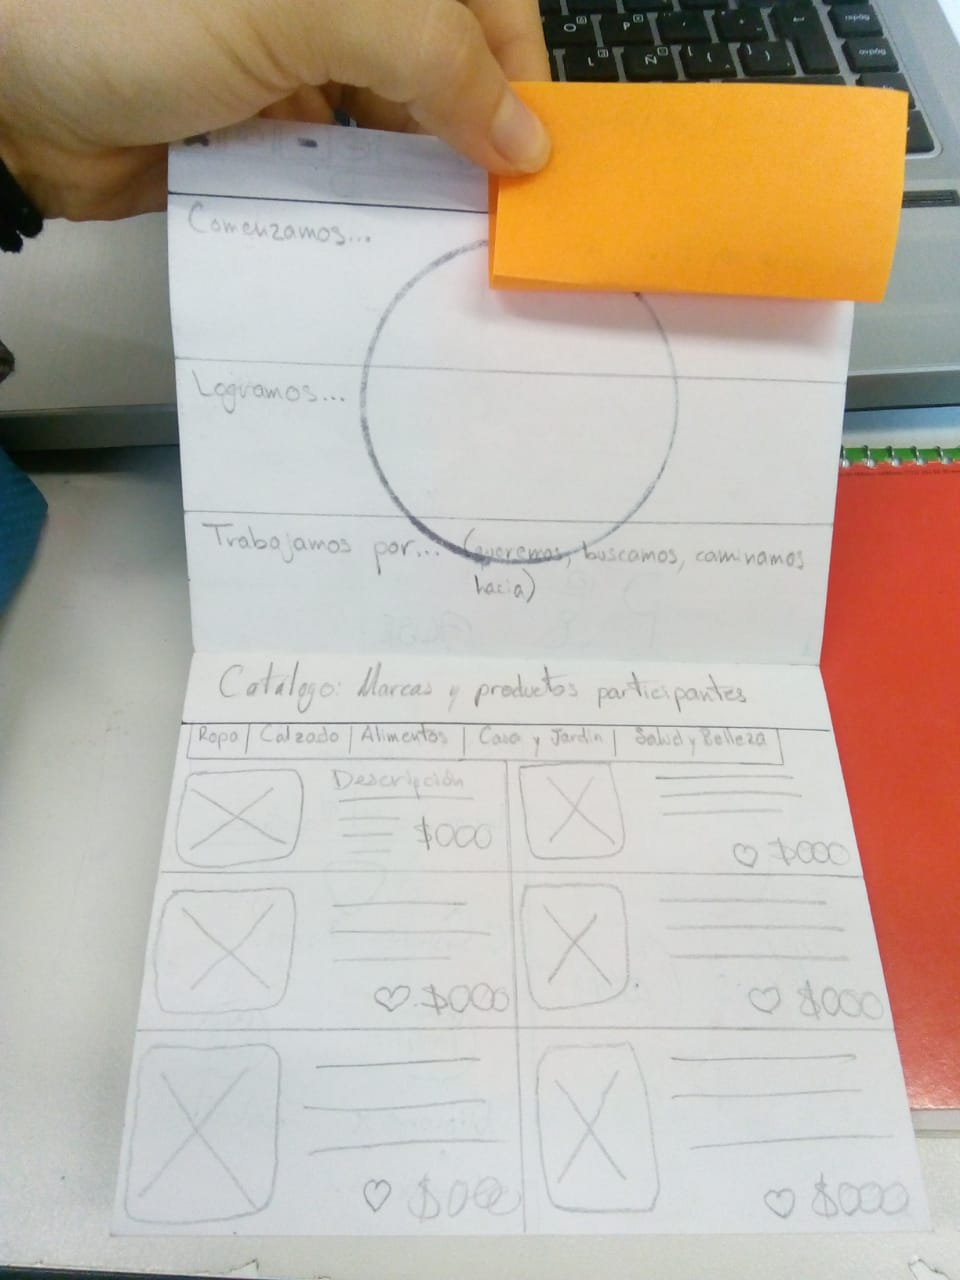 Comenzamos...
Logramos...
Trabajamos por... (queremos, buscamos, caminamos
hacia)
Catálogo: Marcas y productos participantes
Ropa | Calzado | Alimentos | Casa y Jardin | Salud y Belleza
Descripción
$000
♡ $000
♡ $000
♡ $000
♡ $000
♡ $000